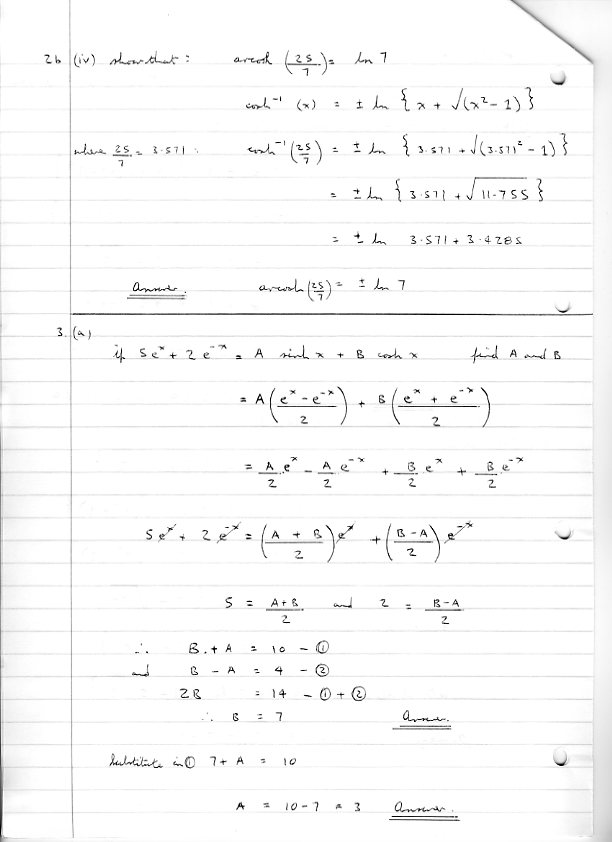 2b (iv) show that : arcosh (25/7) = ln 7
cosh⁻¹ (x) = ± ln { x + √(x² - 1) }
where 25/7 = 3.571 : cosh⁻¹ (25/7) = ± ln { 3.571 + √(3.571² - 1) }
= ± ln { 3.571 + √11.755 }
= ± ln 3.571 + 3.4285
Answer. arcosh (25/7) = ± ln 7
3. (a)
if 5eˣ + 2e⁻ˣ = A sinh x + B cosh x find A and B
= A ((eˣ - e⁻ˣ)/2) + B ((eˣ + e⁻ˣ)/2)
= A/2 eˣ - A/2 e⁻ˣ + B/2 eˣ + B/2 e⁻ˣ
5eˣ + 2e⁻ˣ = ((A + B)/2) eˣ + ((B - A)/2) e⁻ˣ
5 = (A+B)/2 and 2 = (B-A)/2
∴ B + A = 10 - ①
and B - A = 4 - ②
2B = 14 - ① + ②
∴ B = 7 Answer.
Substitute in ① 7 + A = 10
A = 10 - 7 = 3 Answer.